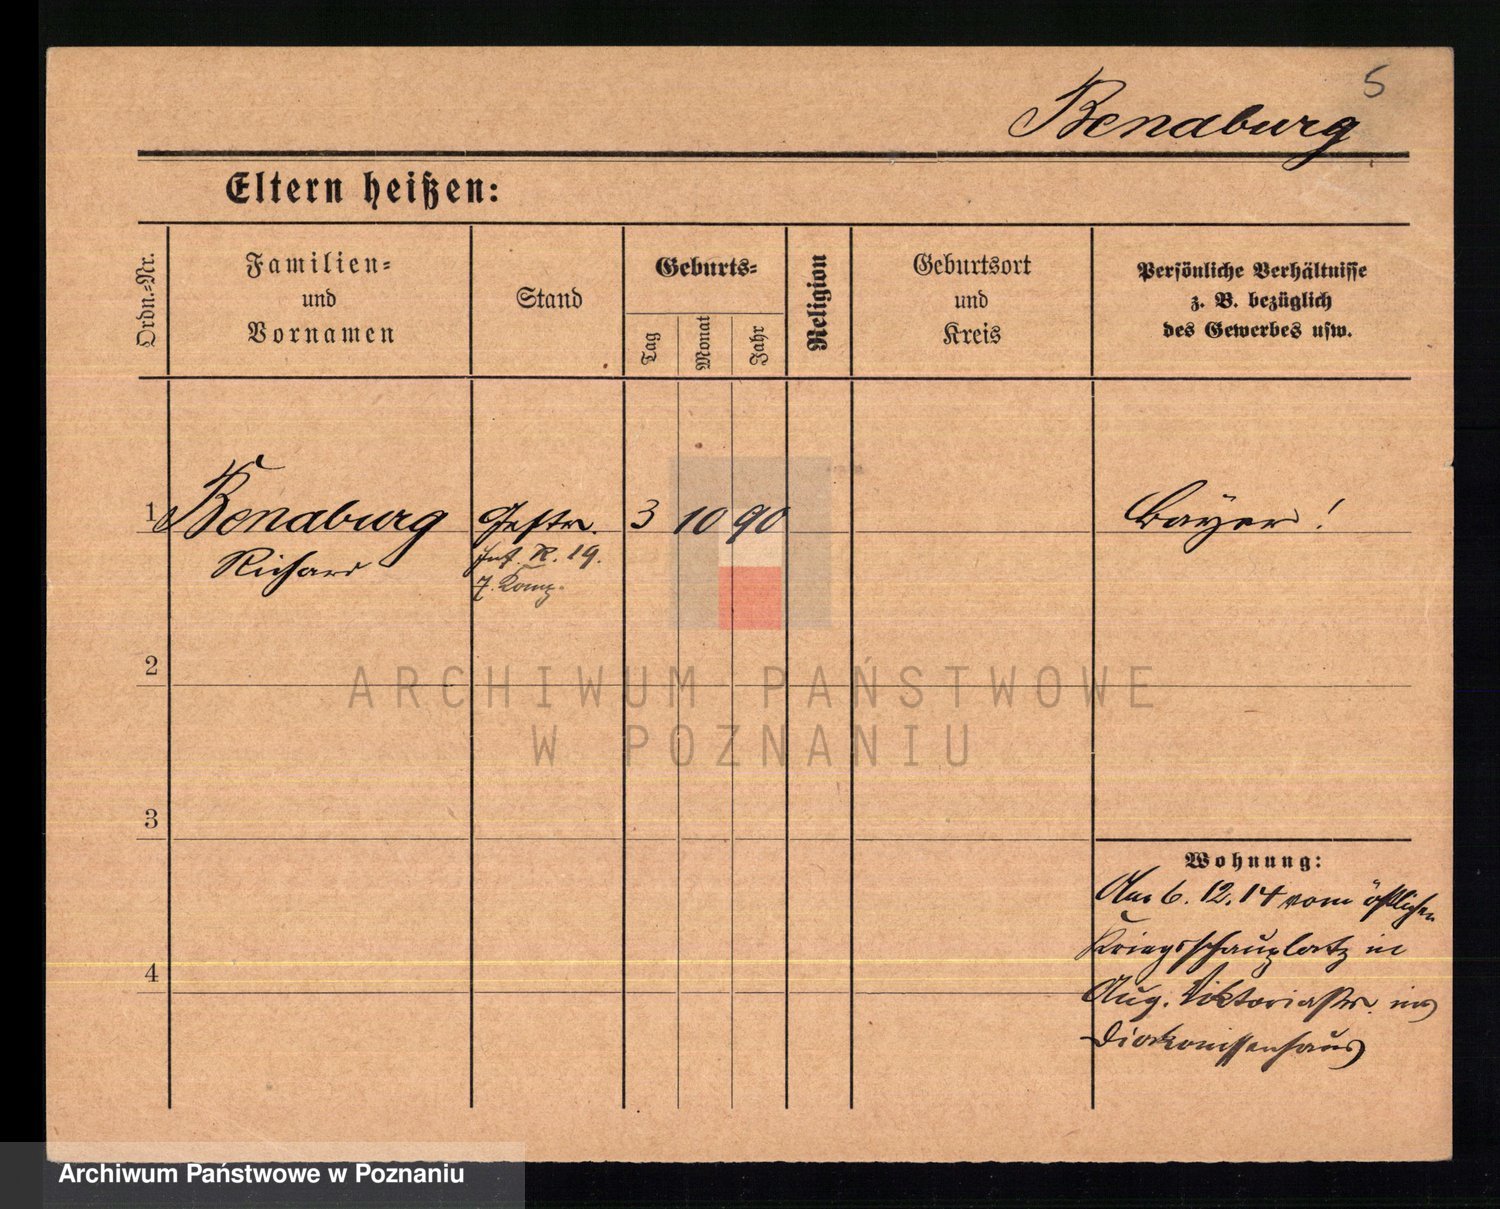 5
Benaburg
Eltern heißen:
Ordn.-Nr.
Familien-
und
Vornamen
Stand
Geburts-
Tag
Monat
Jahr
Religion
Geburtsort
und
Kreis
Persönliche Verhältnisse
z. B. bezüglich
des Gewerbes usw.
1 Benaburg 3 10 90 Bayer!
Richard Inf. R. 19.
7. Komp.
2
ARCHIWUM PAŃSTWOWE
W POZNANIU
3
Wohnung:
Am 6. 12. 14 vom östlichen
Kriegsschauplatz in
4
Aug. Viktoriastr. ins
Diakonissenhaus
Archiwum Państwowe w Poznaniu